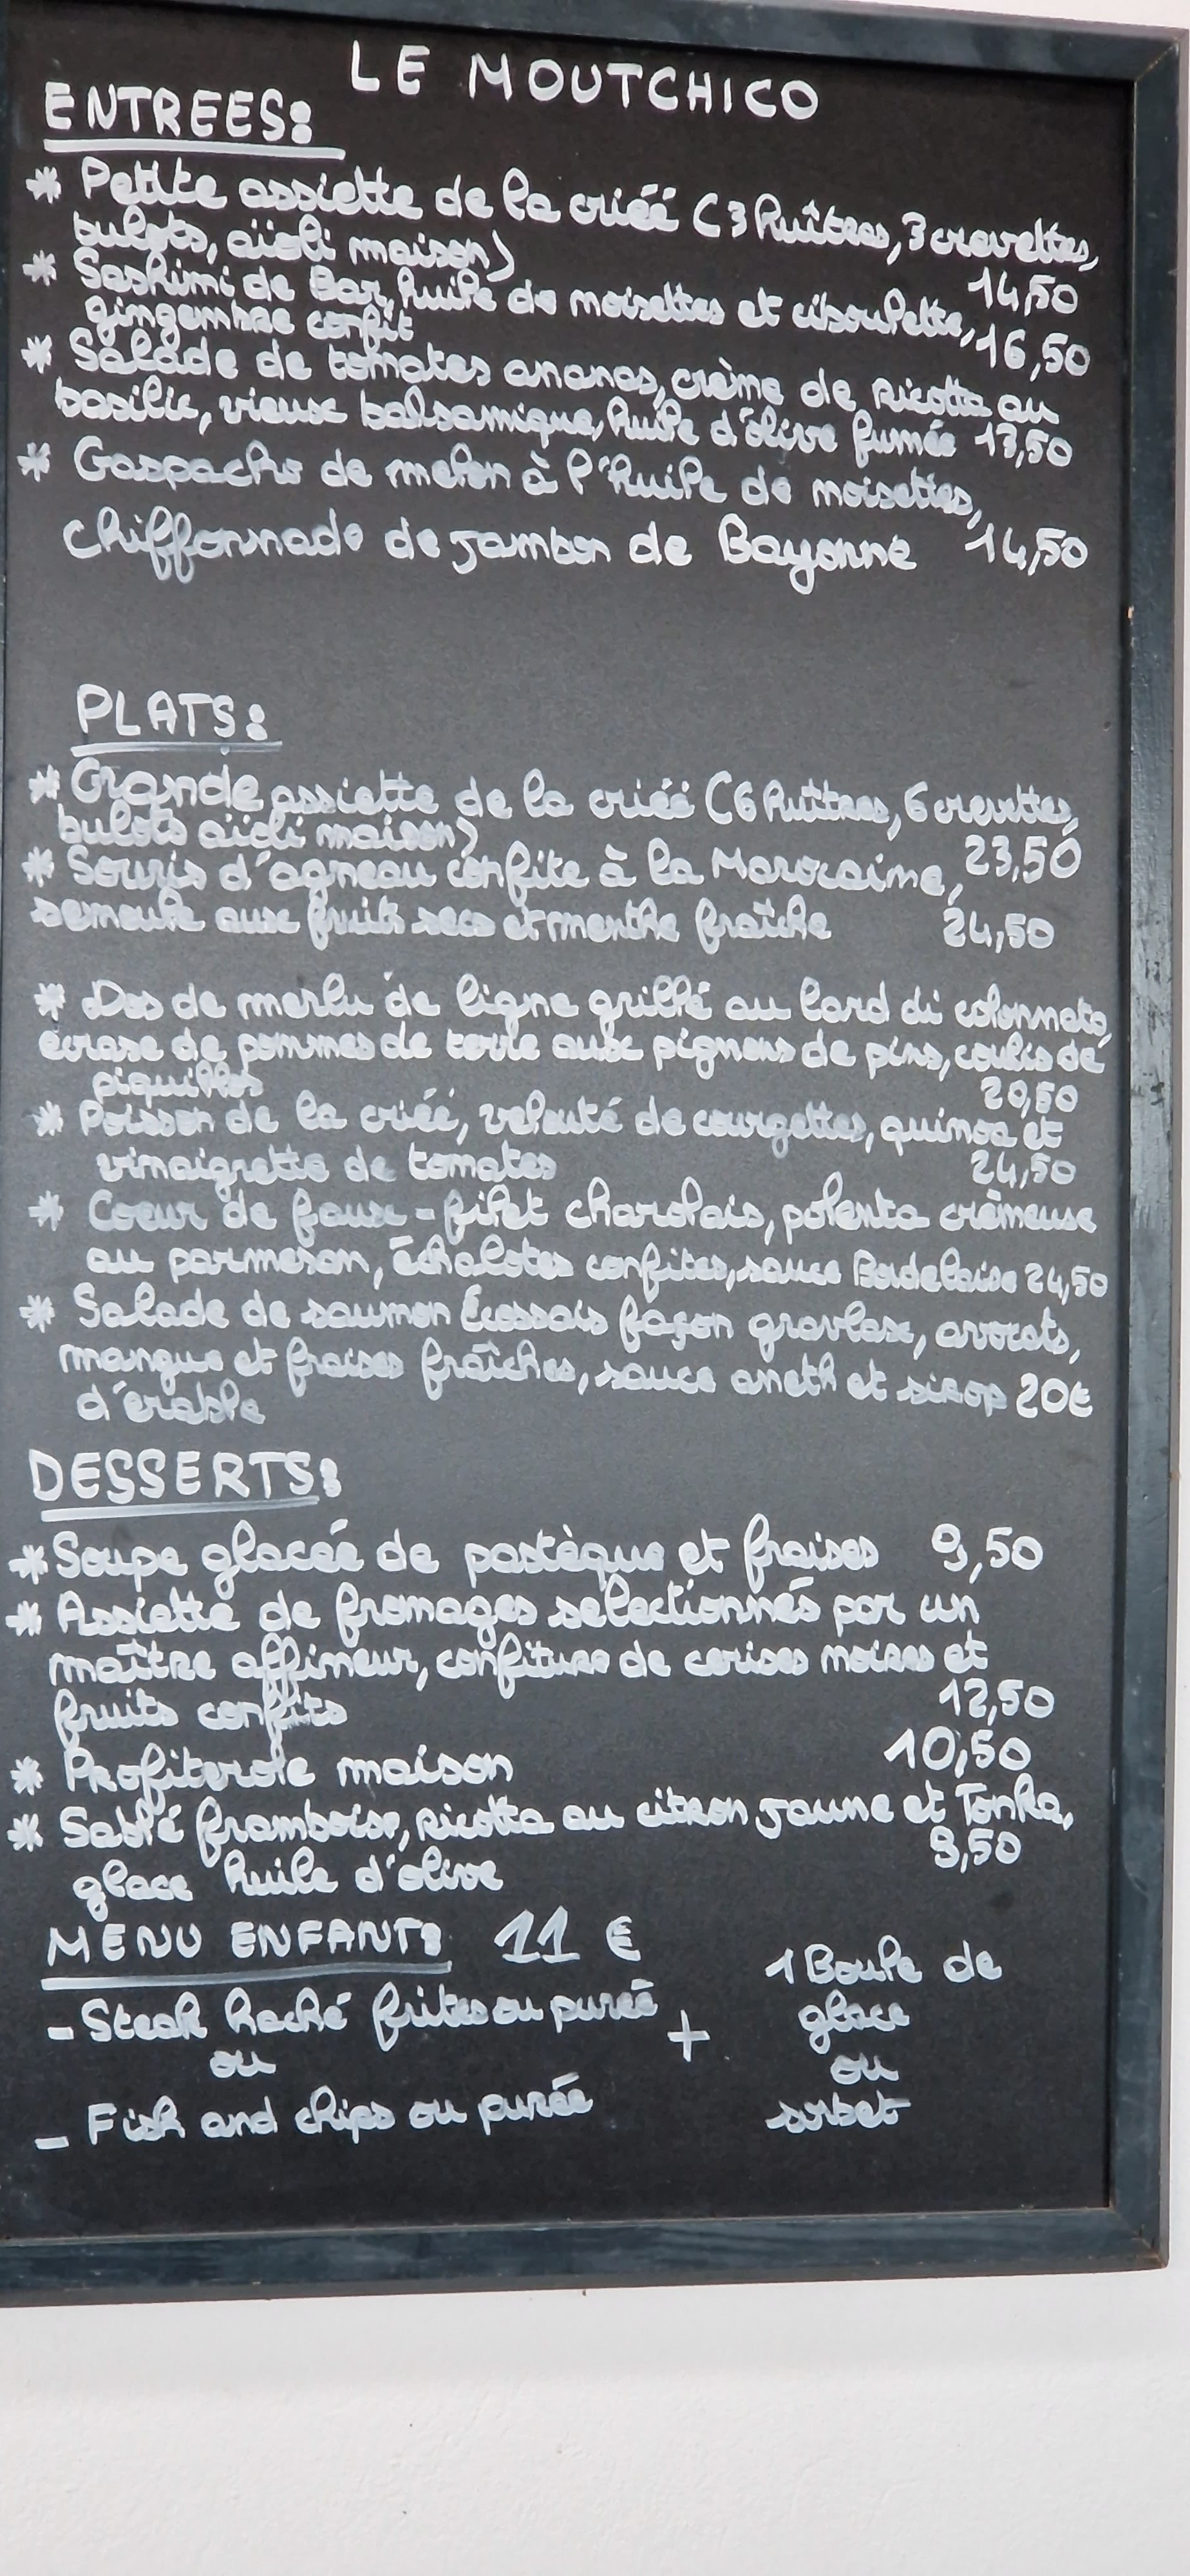 LE MOUTCHICO
ENTREES:
* Petite assiette de la criéé (3 huîtres, 3 crevettes,
bulots, aïoli maison) 14,50
* Sashimi de Bar, huile de noisettes et ciboulette,
gingembre confit 16,50
* Salade de tomates ananas, crème de ricotta au
basilic, vieux balsamique, huile d'olive fumée 13,50
* Gaspacho de melon à l'huile de noisettes,
chiffonnade de jambon de Bayonne 14,50
PLATS:
* Grande assiette de la criéé (6 huîtres, 6 crevettes,
bulots aïoli maison) 23,50
* Souris d'agneau confite à la Marocaine,
semoule aux fruits secs et menthe fraîche 24,50
* Dos de merlu de ligne grillé au lard di colonnata,
écrasé de pommes de terre aux pignons de pins, coulis de
piquillos 20,50
* Poisson de la criéé, velouté de courgettes, quinoa et
vinaigrette de tomates 24,50
* Coeur de faux-filet charolais, polenta crèmeuse
au parmesan, échalotes confites, sauce Bordelaise 24,50
* Salade de saumon Écossais façon gravlax, avocats,
mangue et fraises fraîches, sauce aneth et sirop 20€
d'érable
DESSERTS:
* Soupe glacéé de pastèque et fraises 9,50
* Assiette de fromages selectionnés par un
maître affineur, confiture de cerises noires et
fruits confits 12,50
* Profiterole maison 10,50
* Sablé framboise, ricotta au citron jaune et Tonka,
glace huile d'olive 9,50
MENU ENFANT: 11 €
- Steak haché frites ou puréé
ou
- Fish and chips ou purée
+
1 Boule de
glace
ou
sorbet